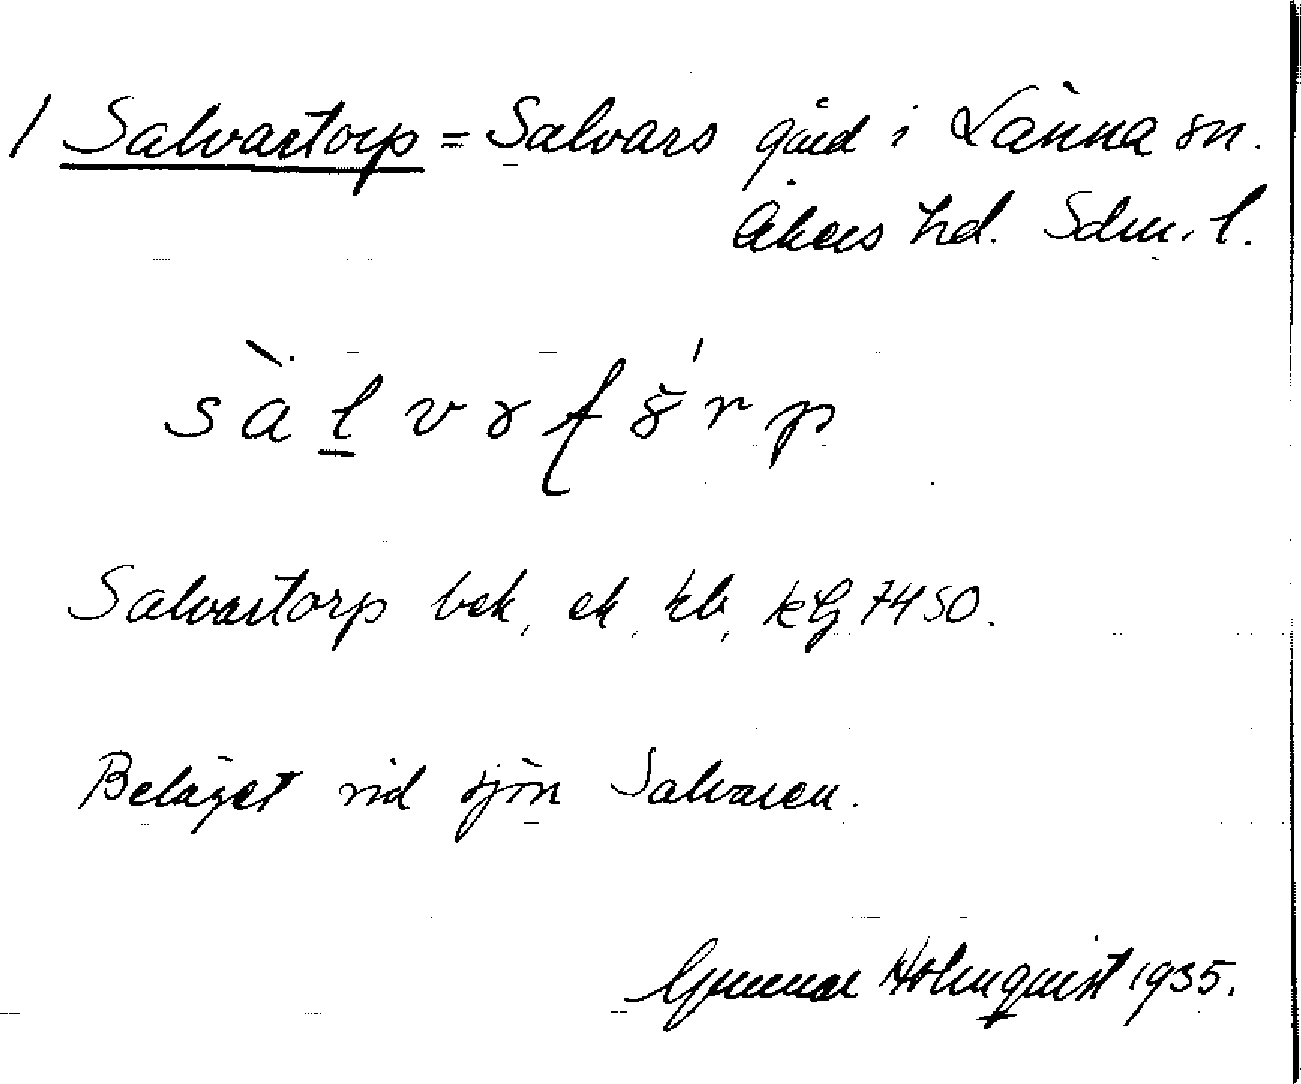 / Salvartorp = Salvars gård i Länna sn.
Åkers hd. Sdm. l.
Salvartorp bek, ek, kb, kG 7450.
Beläget vid sjön Salvaren.
Gunnar Holmquist 1935.